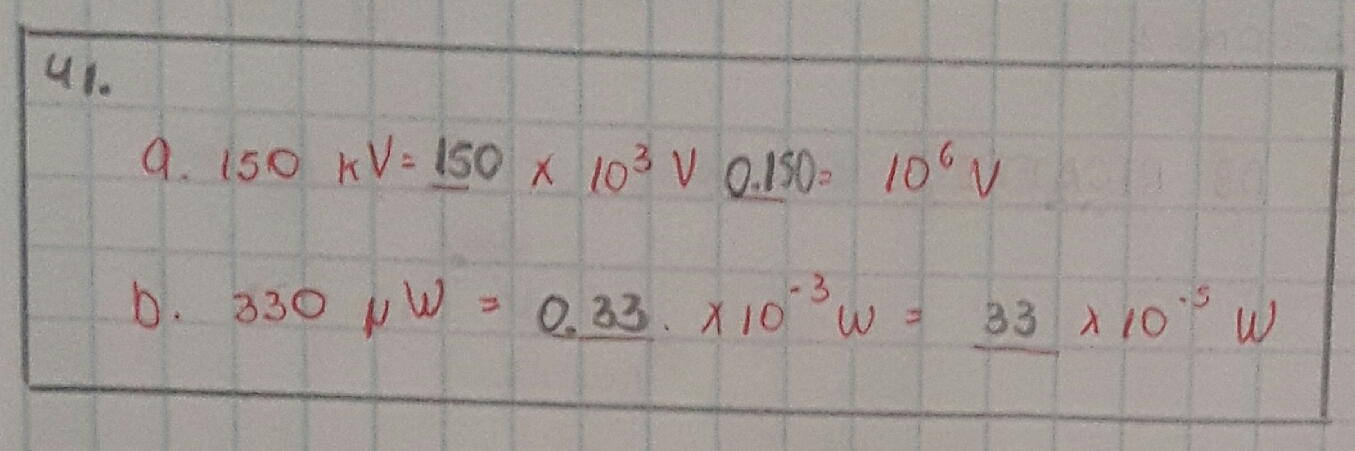 41.
a. 150 kV = 150 x 10³ V 0.150= 10⁶ V
b. 330 μW = 0.33. x 10⁻³ W = 33 x 10⁻⁵ W